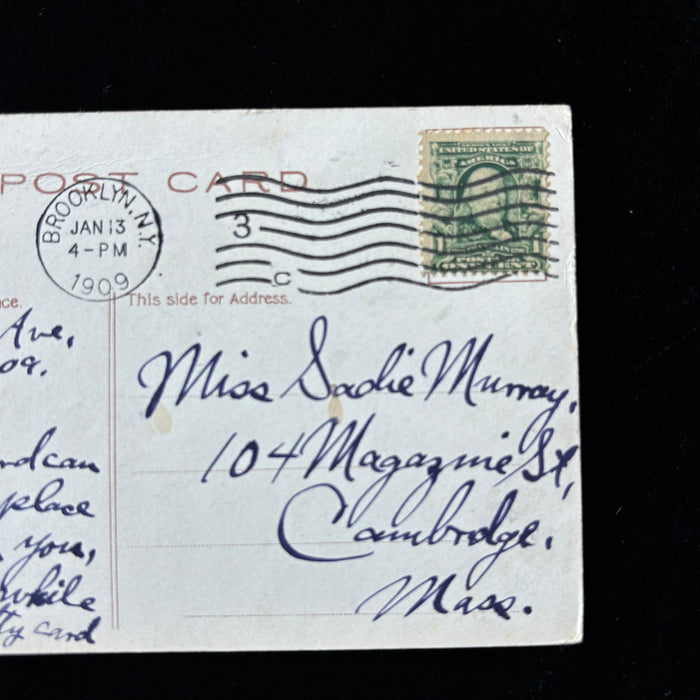 POST CARD
BROOKLYN, N.Y.
JAN 13
4-PM
1909
3
C
SERIES 1902
UNITED STATES OF
AMERICA
nce.
This side for Address.
Ave,
09.
Miss Sadie Murray,
104 Magazine St,
Cambridge.
Mass.
rd can
place
you,
while
ty card